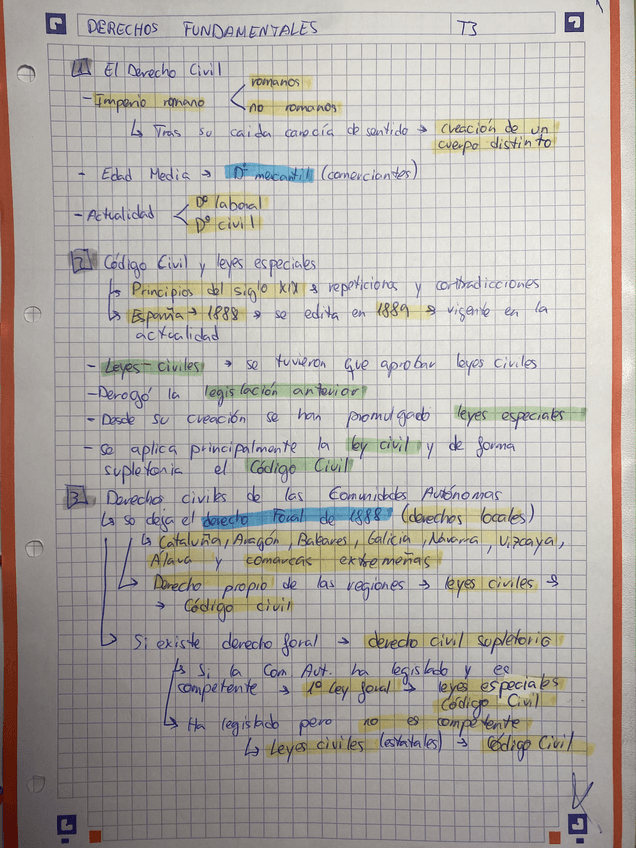 DERECHOS FUNDAMENTALES T3
1 El Derecho Civil
romanos
- Imperio romano
no romanos
↳ Tras su caida carecía de sentido → creación de un
cuerpo distinto
- Edad Media → Dº mercantil (comerciantes)
Dº laboral
- Actualidad
Dº civil
2 Código Civil y leyes especiales
↳ Principios del siglo XIX → repeticiones y contradicciones
↳ España → 1888 → se edita en 1889 → vigente en la
actualidad
- Leyes civiles → se tuvieron que aprobar leyes civiles
- Derogó la legislación anterior
- Desde su creación se han promulgado leyes especiales
- se aplica principalmente la ley civil y de forma
supletoria el Código Civil
3 Derechos civiles de las Comunidades Autónomas
↳ se deja el derecto Foral de 1888 (derechos locales)
↳ Cataluña, Aragón, Baleares, Galicia, Navarra, Vizcaya,
Álava y comarcas extremeñas
→ Derecho propio de las regiones → leyes civiles →
→ Código civil
→ Si existe derecho foral → derecho civil supletorio
↳ Si la Com Aut. ha legislado y es
competente → 1º Ley foral → leyes especiales
Código Civil
↳ Ha legislado pero no es competente
↳ Leyes civiles (estatales) → Código Civil